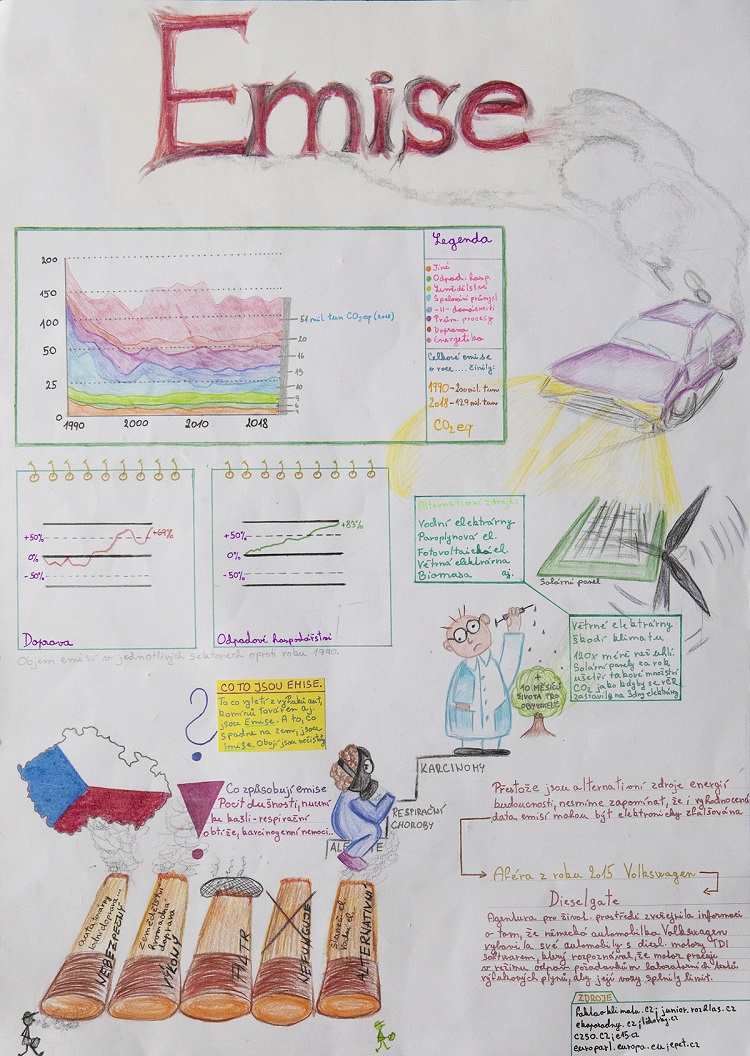 Emise
200
150
100
50
25
0
1990
2000
2010
2018
51 mil tun CO₂eq (2018)
20
16
15
10
9
6
Legenda
Jiné
Odpad. hosp.
Zemědělství
Spalování průmysl
-11- domácnosti
Prům. procesy
Doprava
Energetika
Celkové emise
v roce..... činily:
1990-200 mil. tun
2018-129 mil. tun
CO₂eq
+50%
0%
-50%
+69%
Doprava
+50%
0%
-50%
+83%
Odpadové hospodářství
Objem emisí v jednotlivých sektorech oproti roku 1990.
Alternativní zdroje:
Vodní elektrárny
Paroplynová el.
Fotovoltaická el.
Větrná elektrárna
Biomasa aj.
Solární panel
Větrné elektrárny
škodí klimatu
120x méně než uhlí.
Solární panely za rok
ušetří takové množství
CO₂ jako kdyby se věř
zastavily na 3dny elektrárny
+
10 MĚSÍCŮ
ŽIVOTA PRO
OBYVATELE
CO TO JSOU EMISE.
To co vyletí z výfuků aut,
komínů továren aj.
jsou Emise. A to, co
spadne na zem, jsou
Imise. Obojí jsou nečistoty
?
!
Co způsobují emise
Pocit dušnosti, nucení
ku kašli - respirační
obtíže, karcinogenní nemoci..
KARCINOMY
RESPIRAČNÍ
CHOROBY
Přestože jsou alternativní zdroje energií
budoucností, nesmíme zapomínat, že i vyhodnocená
data emisí mohou být elektronicky zfalšována
Aféra z roku 2015 Volkswagen
Dieselgate
Agentura pro život. prostředí zveřejnila informaci
o tom, že německá automobilka Volkswagen
vybavila své automobily s diesl. motory TDI
softwarem, který rozpoznával, že motor pracuje
v režimu odpov. požadavkům laboratorních testů
výfukových plynů, aby její vozy splnily limit.
auta továrny
NEBEZPEČNÝ
zemědělství
hromadná
doprava
VÝKONY
FILTR
NEFUNGUJE
ALTERNATIVA
ZDROJE
faktaoklimatu.cz; junior.rozhlas.cz
czso.cz; e15.cz
europarl.europa.eu; epet.cz